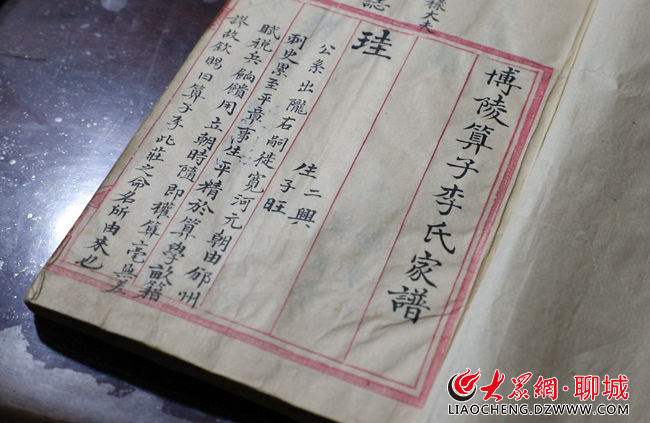 博陵算子李氏家譜
珪
生二興
子旺
公系出隴右嗣徒寬河元朝由邠州
刺史累至平章事生平精於算學畝籍
賦稅兵餉饋用立朝時隨即權算毫無差
謬故欽賜曰算子李此莊之命名所由来也
様大夫
誌
大众網·聊城
LIAOCHENG.DZWWW.COM